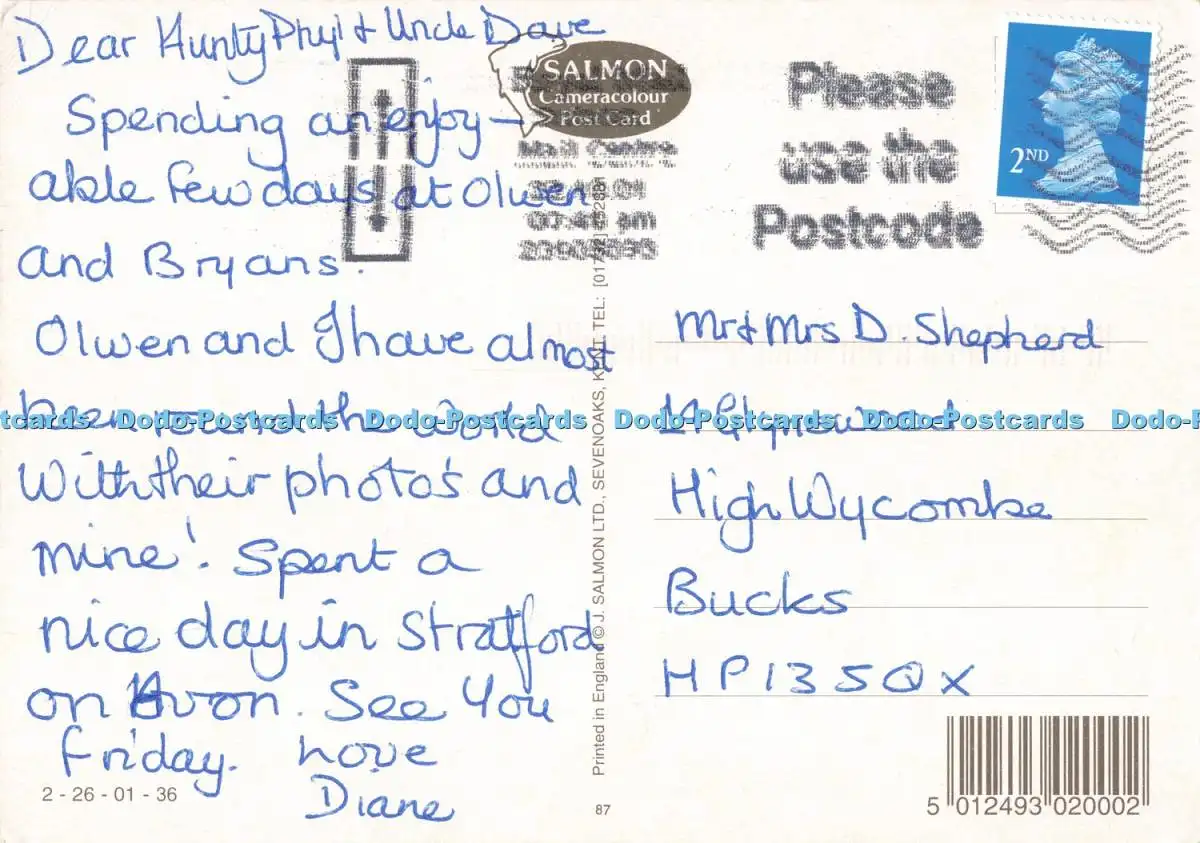 Dear Aunty Phyl & Uncle Dave
Spending an enjoy-
able few days at Olwen
and Bryans.
Olwen and I have almost
been round the world
with their photo's and
mine! Spent a
nice day in Stratford
on Avon. See you
Friday. Love
Diane
2 - 26 - 01 - 36
SALMON
Cameracolour
Post Card
Mail Centre
Please
use the
Postcode
2ND
Printed in England © J. SALMON LTD., SEVENOAKS, KENT. TEL:
87
Mr & Mrs D. Shepherd
High Wycombe
Bucks
HP13 5QX
5 012493 020002
Dodo-Postcards Dodo-Postcards Dodo-Postcards Dodo-Postcards